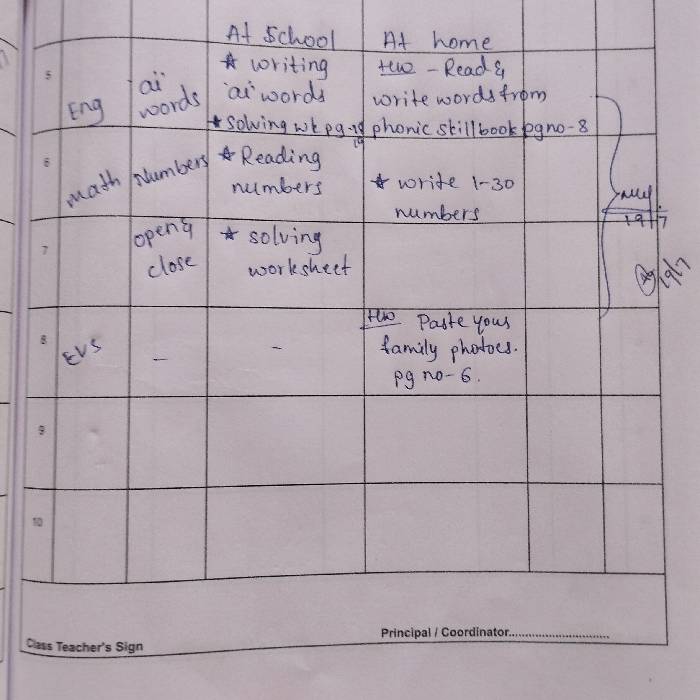 At School At home
5 Eng 'ai' words ★ writing 'ai' words ★ solving wk pg-19 19 HW - Read & write words from phonic skill book pg no-8
6 Math Numbers ★ Reading numbers ★ write 1-30 numbers
19/7
7 open & close ★ solving worksheet
19/7
8 EVS — – HW Paste yous family photoes. pg no-6.
9
10
Class Teacher's Sign Principal / Coordinator..............................